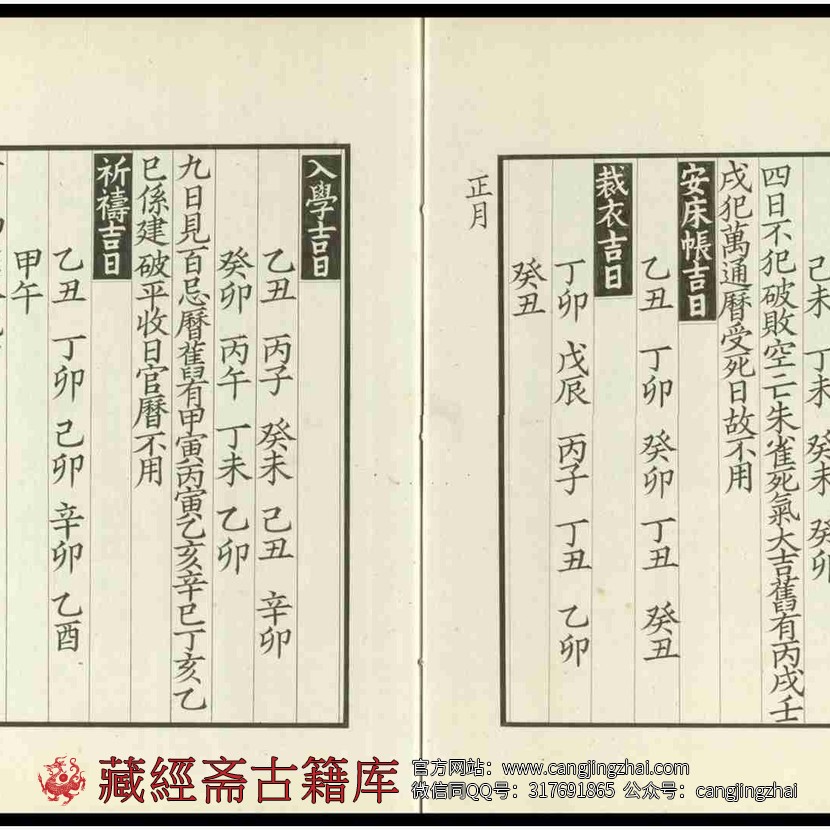 己未 丁未 癸未 癸卯
四日不犯破敗空亡朱雀死氣大吉舊有丙戌壬
戌犯萬通曆受死日故不用
安床帳吉日
乙丑 丁卯 癸卯 丁丑 癸丑
裁衣吉日
丁卯 戊辰 丙子 丁丑 乙卯
癸丑
正月
入學吉日
乙丑 丙子 癸未 己丑 辛卯
癸卯 丙午 丁未 乙卯
九日見百忌曆舊有甲寅丙寅乙亥辛巳丁亥乙
巳係建破平收日官曆不用
祈禱吉日
乙丑 丁卯 己卯 辛卯 乙酉
甲午
藏經斋古籍库
官方网站：www.cangjingzhai.com
微信同QQ号：317691865 公众号：cangjingzhai